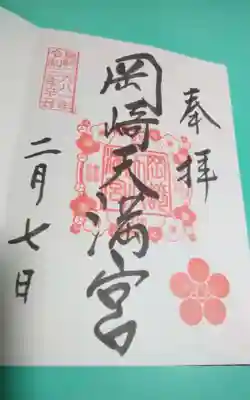 奉拝
岡崎天満宮
二月七日